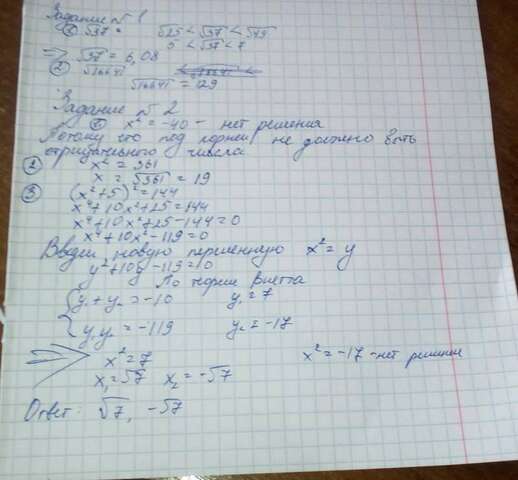 Задание №1
① √37 = √25 < √37 < √49
5 < √37 < 7
=> √37 = 6,08
② √16641
√16641 = 129
Задание №2
① x² = -40 - нет решения
Потому что под корнем не должно быть
отрицательного числа
② x² = 361
x = √361 = 19
③ (x²+5)² = 144
x⁴+10x²+25=144
x⁴+10x²+25-144=0
x⁴+10x²-119=0
Введём новую переменную x² = y
y²+10y-119=0
По теореме Виетта
{ y₁+y₂ = -10 y₁ = 7
y₁y₂ = -119 y₂ = -17
=> x² = 7 x² = -17 - нет решения
x₁ = √7 x₂ = -√7
Ответ: √7, -√7